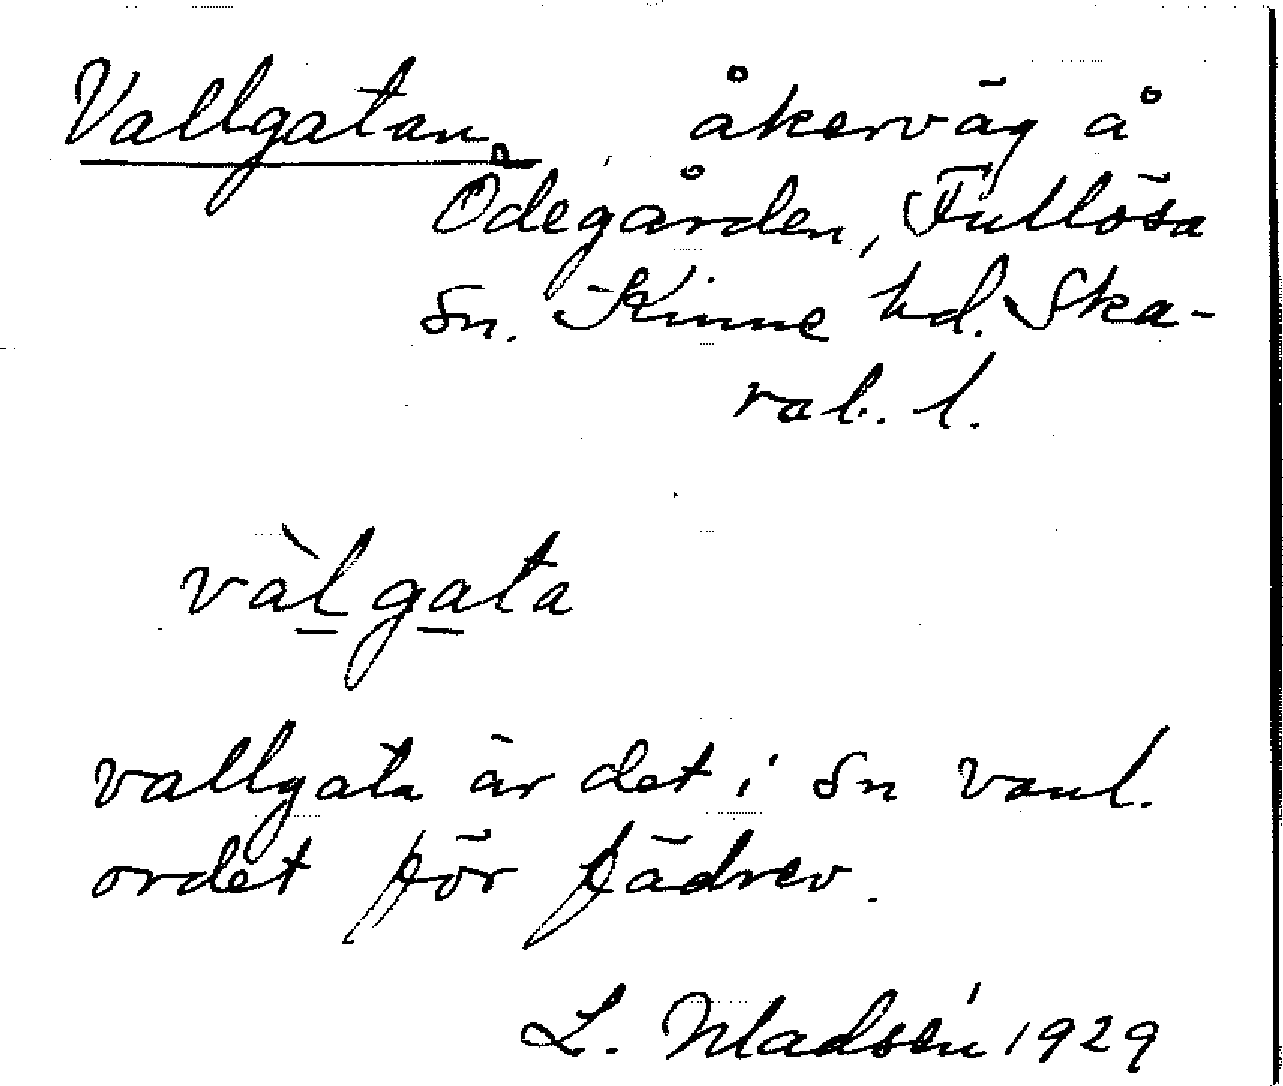 Vallgatan, åkerväg å
Ödegården, Fullösa
sn. Kinne hd. Ska-
rab. l.
vàlgata
vallgata är det i sn vanl.
ordet för fädrev.
L. Madsén 1929